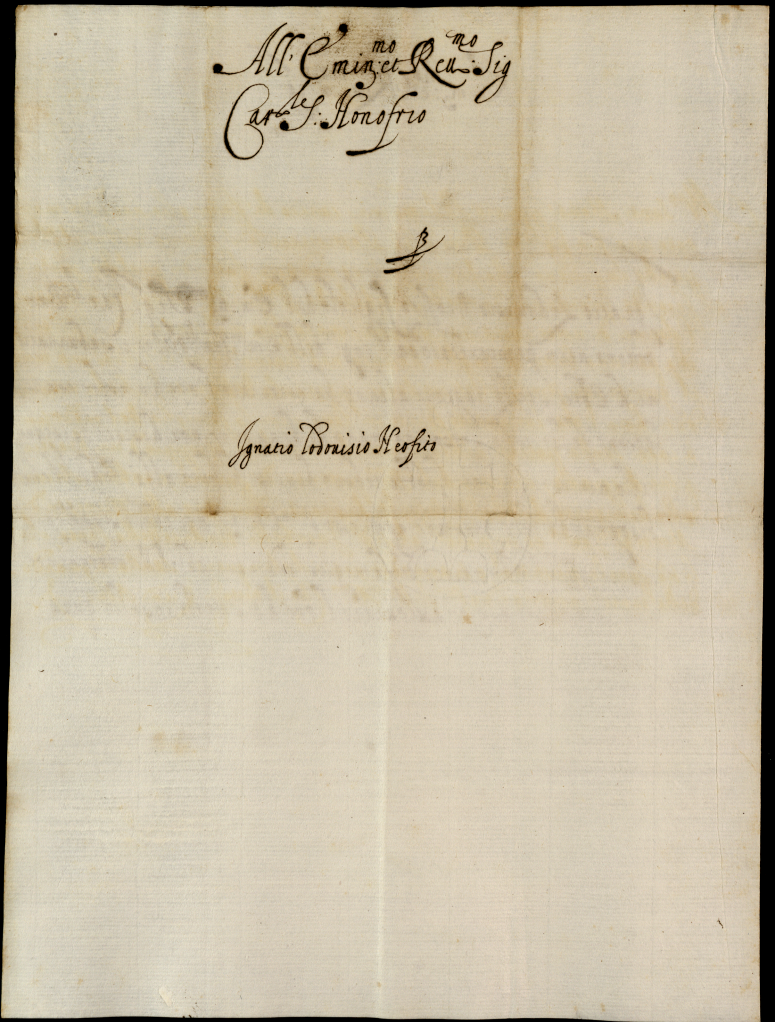 All' Emin:mo et Reu:mo Sig
Car:le S: Honofrio
Ignatio Lodouisio Neofito